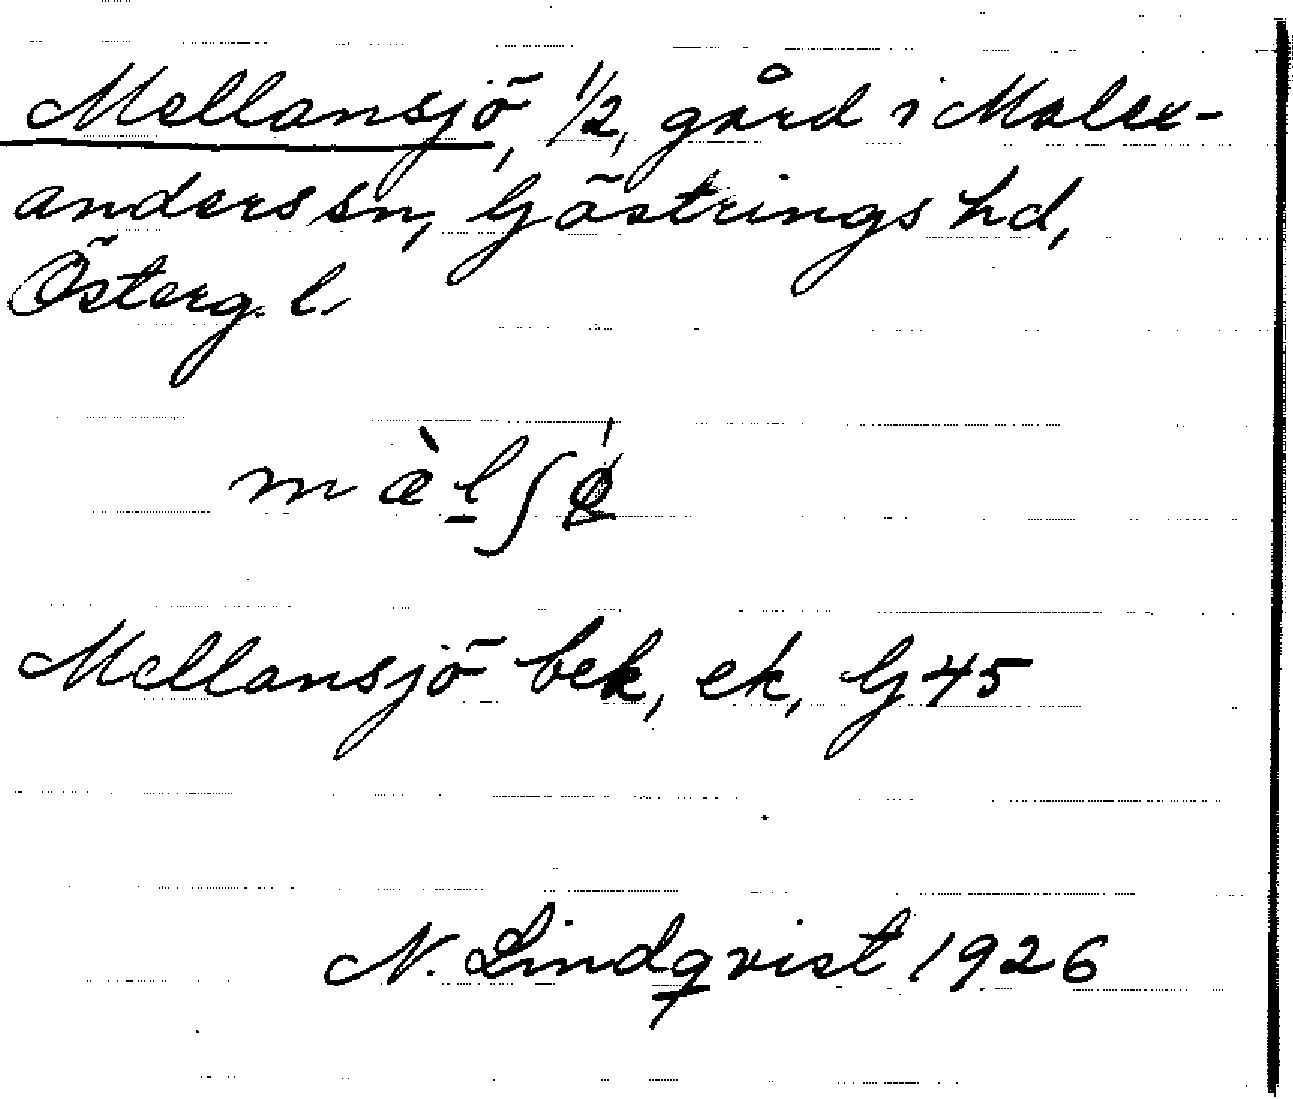 Mellansjö, 1/2, gård i Malex-
anders sn, Göstrings hd,
Österg. l.
mæ̀l̠ʃǿ
Mellansjö bek, ek, G 45
N. Lindqvist 1926